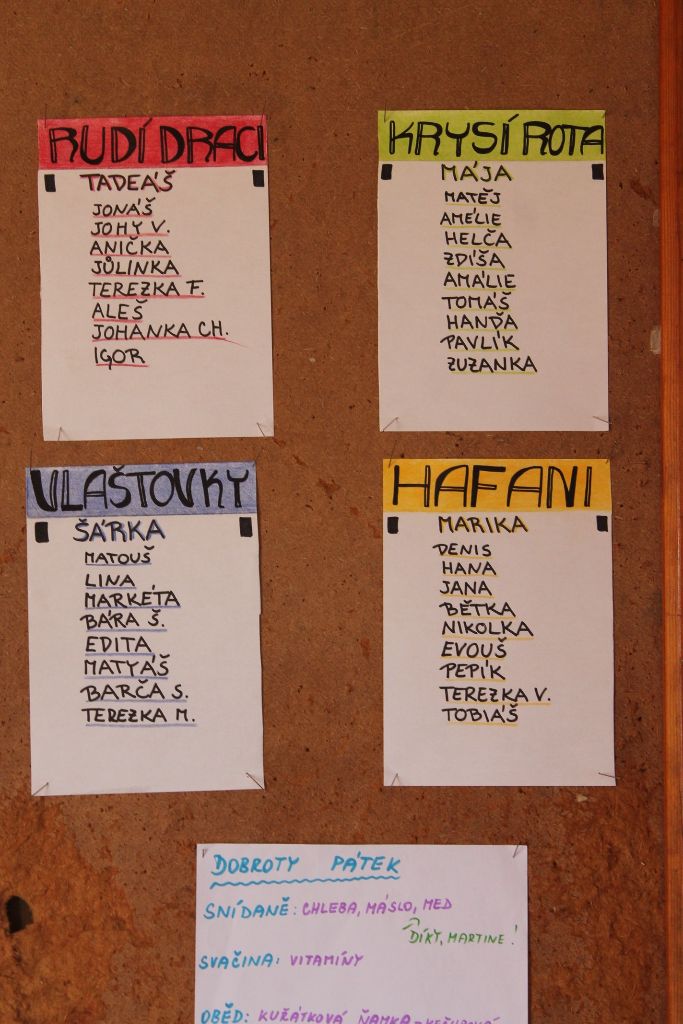 RUDÍ DRACI
TADEÁŠ
JONÁŠ
JOHY V.
ANIČKA
JŮLINKA
TEREZKA F.
ALEŠ
JOHANKA CH.
IGOR
KRYSÍ ROTA
MÁJA
MATĚJ
AMÉLIE
HELČA
ZDÍŠA
AMÁLIE
TOMÁŠ
HANĎA
PAVLÍK
ZUZANKA
VLAŠTOVKY
ŠÁRKA
MATOUŠ
LINA
MARKÉTA
BÁRA Š.
EDITA
MATYÁŠ
BARČA S.
TEREZKA M.
HAFANI
MARIKA
DENIS
HANA
JANA
BĚTKA
NIKOLKA
EVOUŠ
PEPÍK
TEREZKA V.
TOBIÁŠ
DOBROTY PÁTEK
SNÍDANĚ: CHLEBA, MÁSLO, MED
DÍKY, MARTINE!
SVAČINA: VITAMÍNY
OBĚD: KUŽÁTKOVÁ ŇAMKA